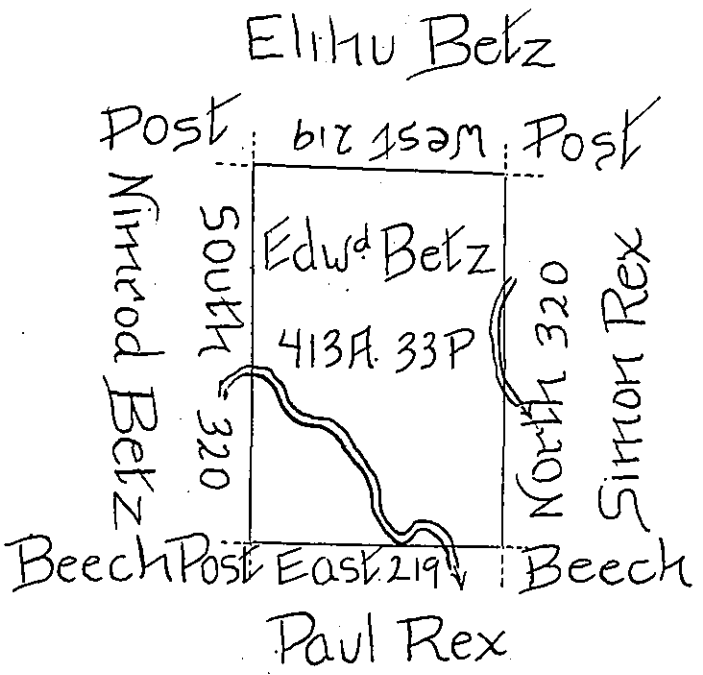 Elihu Betz
Post
West 219
Post
Nimrod Betz
South 320
Edwd Betz
413A. 33P
North 320
Simon Rex
Beech Post
East 219
Beech
Paul Rex